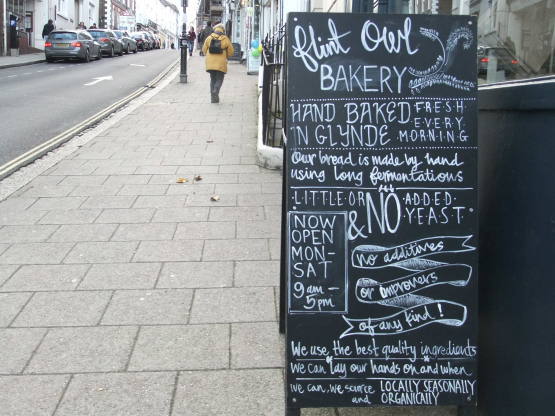 flint owl
BAKERY
HAND BAKED FRESH
IN GLYNDE EVERY
MORNING
Our bread is made by hand
using long fermentations
LITTLE OR NO ADDED
& YEAST
NOW
OPEN
MON-
SAT
9am-
5pm
no additives
or improvers
of any kind!
We use the best quality ingredients
we can lay our hands on and when
we can, we source LOCALLY SEASONALLY
and ORGANICALLY